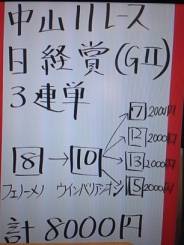 中山11レース
日経賞(GⅡ)
3連単
7 2000円
12 2000円
8→10 13 2000円
15 2000円
フェノーメノ ウインバリアシオン
計8000円